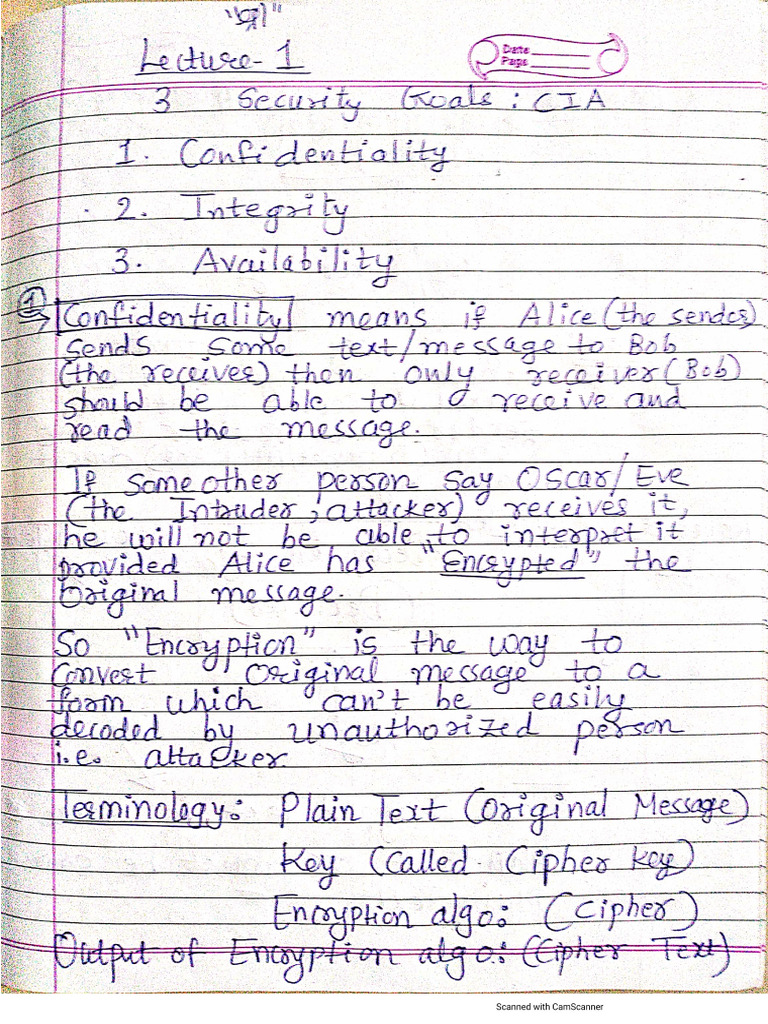 "श्री"
Lecture-1
Date
Page
3 Security Goals: CIA
1. Confidentiality
2. Integrity
3. Availability
① Confidentiality means if Alice (the sender)
sends some text/message to Bob
(the receiver) then only receiver (Bob)
should be able to receive and
read the message.
If some other person say Oscar/Eve
(the Intruder, attacker) receives it,
he will not be able to interpret it
provided Alice has "Encrypted" the
original message.
So "Encryption" is the way to
convert original message to a
form which can't be easily
decoded by unauthorized person
i.e. attacker.
Terminology: Plain Text (Original Message)
Key (called Cipher key)
Encryption algo: (Cipher)
Output of Encryption algo: (Cipher Text)
Scanned with CamScanner